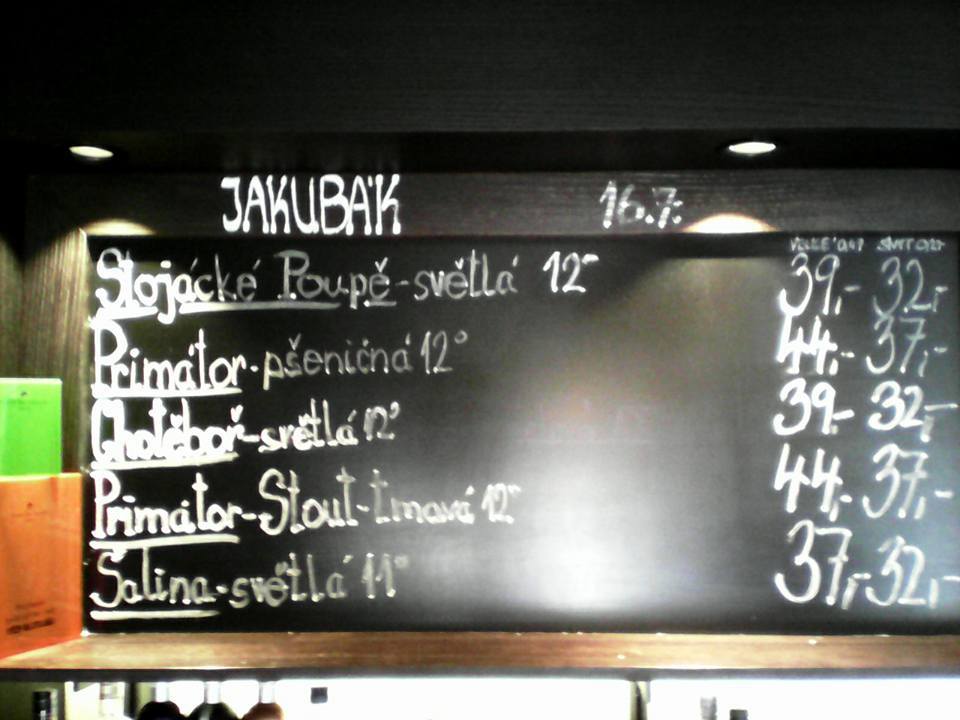 JAKUBÁK 16.7.
Stojácké Poupě-světlá 12° 39,- 32,-
Primátor-pšeničná 12° 44,- 37,-
Chotěboř-světlá 12° 39,- 32,-
Primátor-Stout-tmavá 12° 44,- 37,-
Šalina-světlá 11° 37,- 32,-